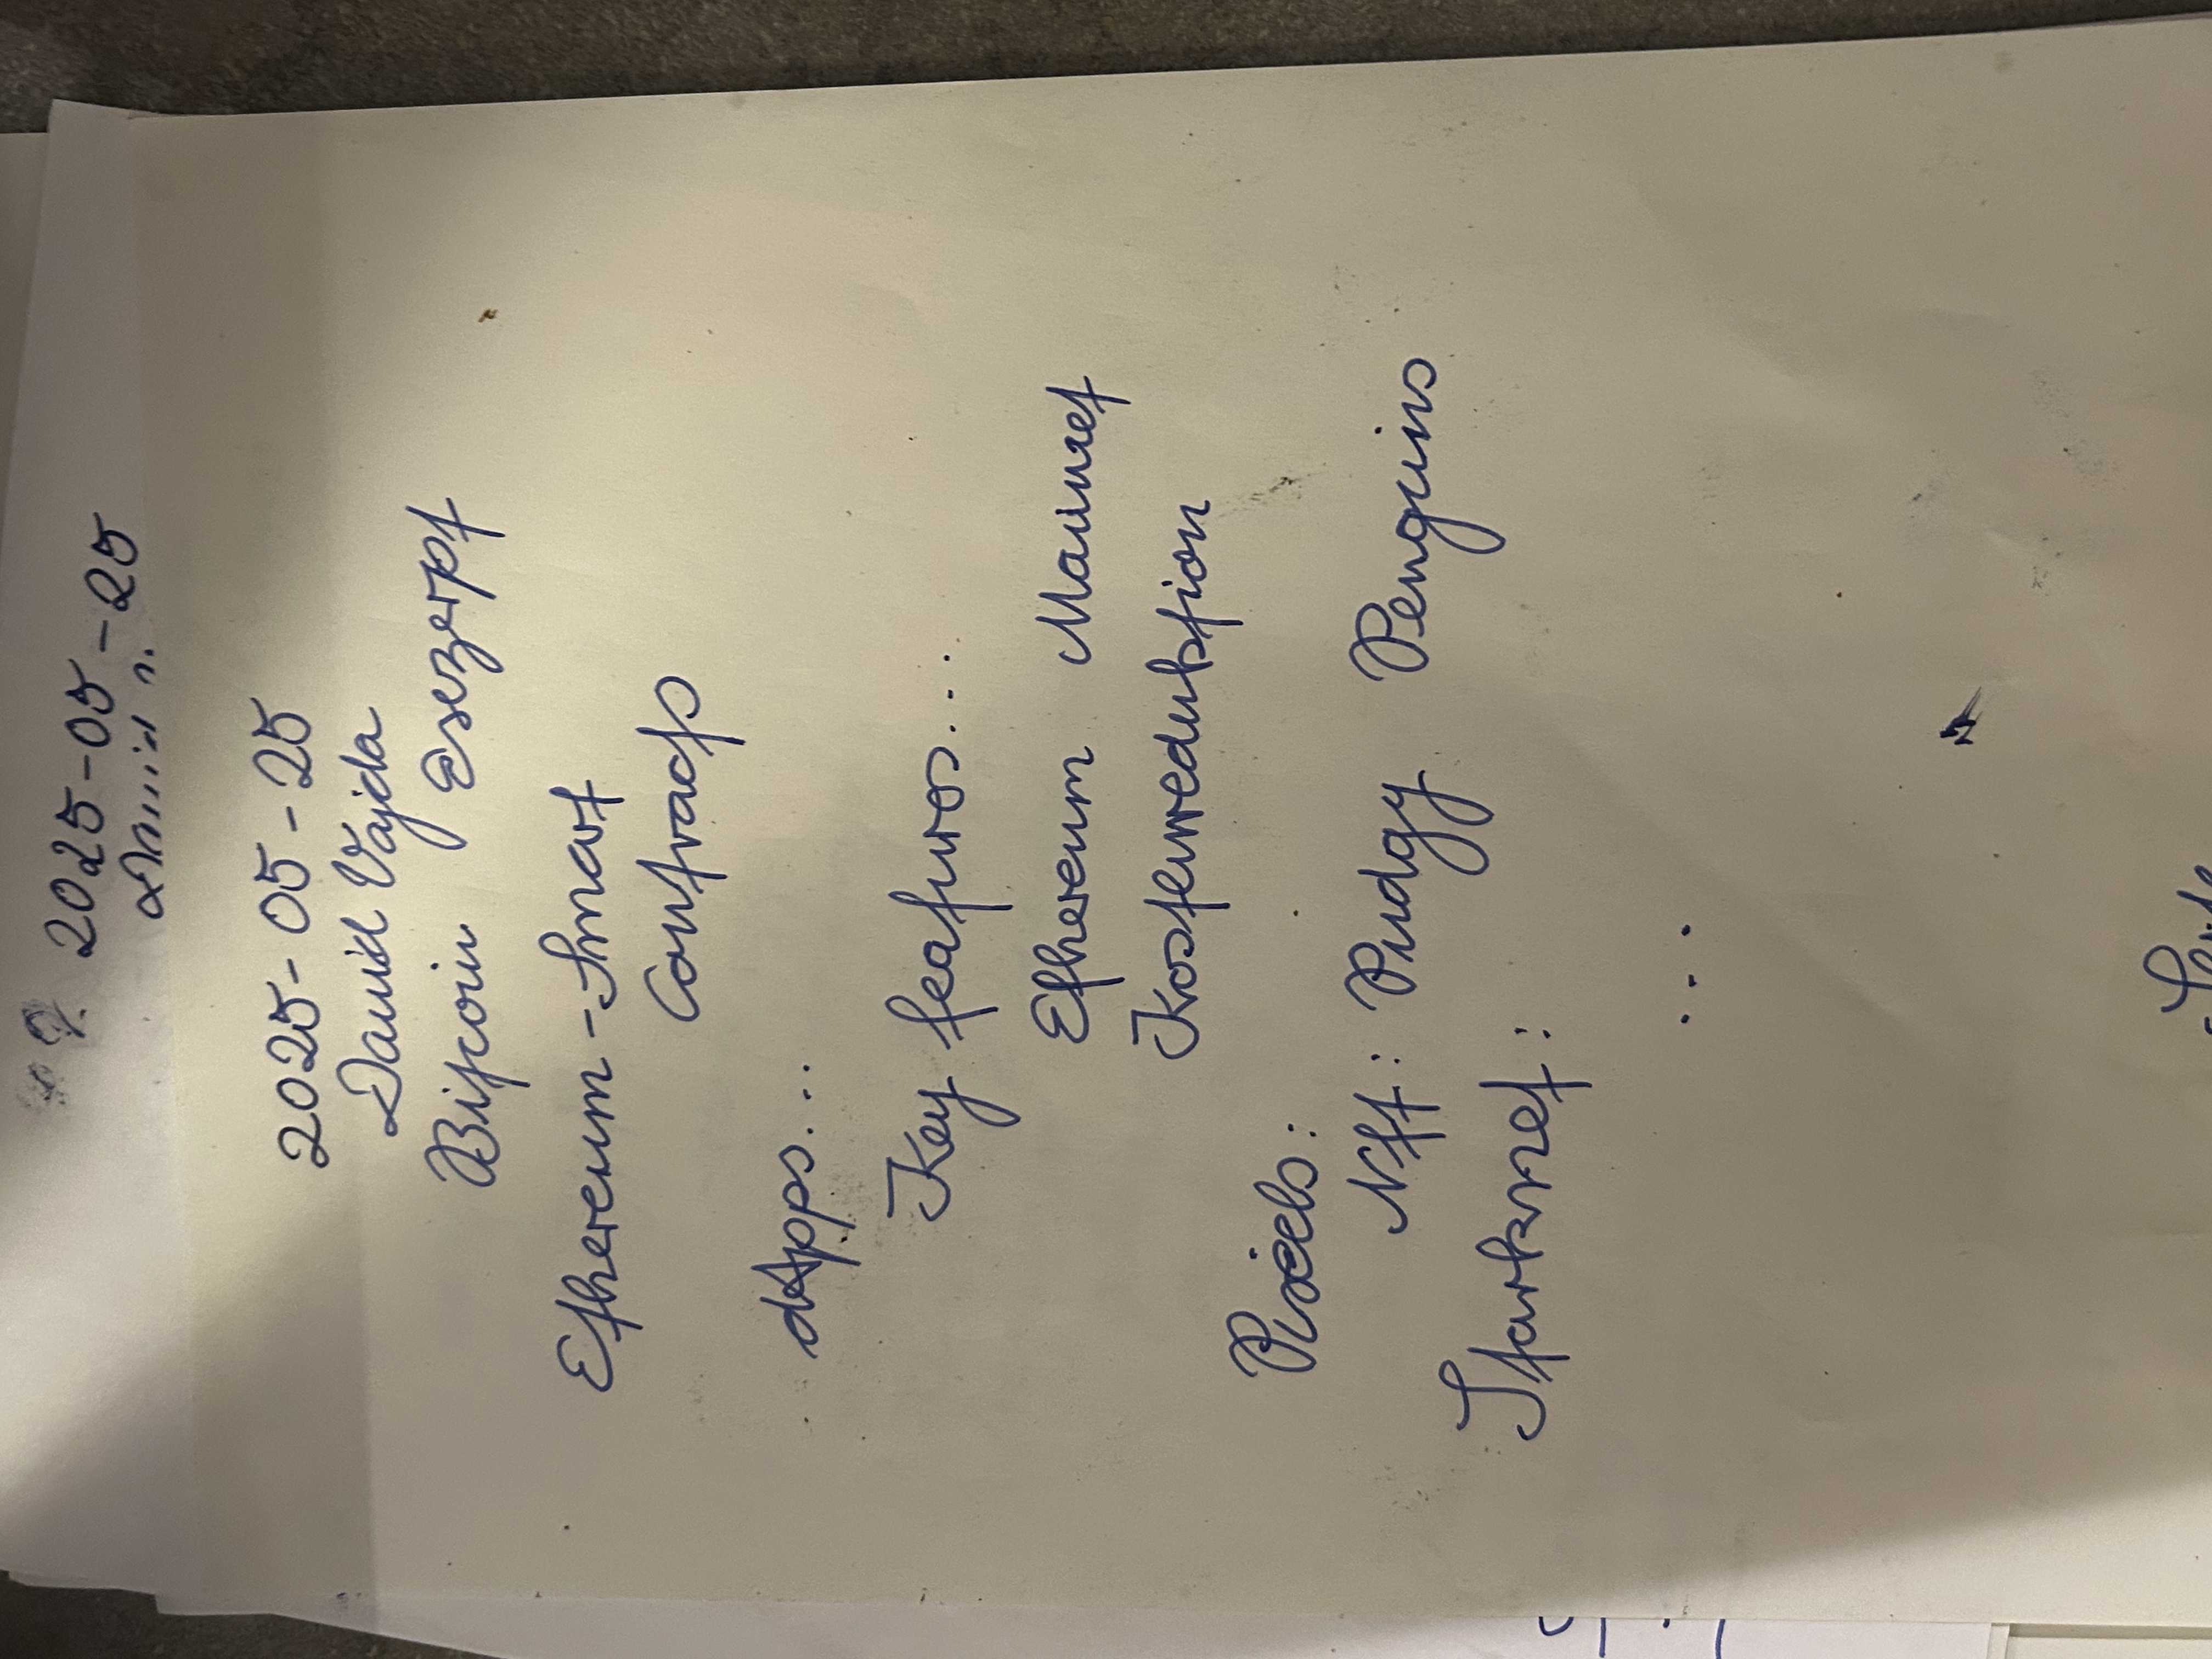 2025-05-25
2025-05-25
David Vajda
Bitcoin Exzerpt
Ethereum-Smart
Contracts
dApps...
Key features....
Ethereum Mainnet
Kostenreduktion
Pixels:
Nft: Pudgy Penguins
Starknet:
...